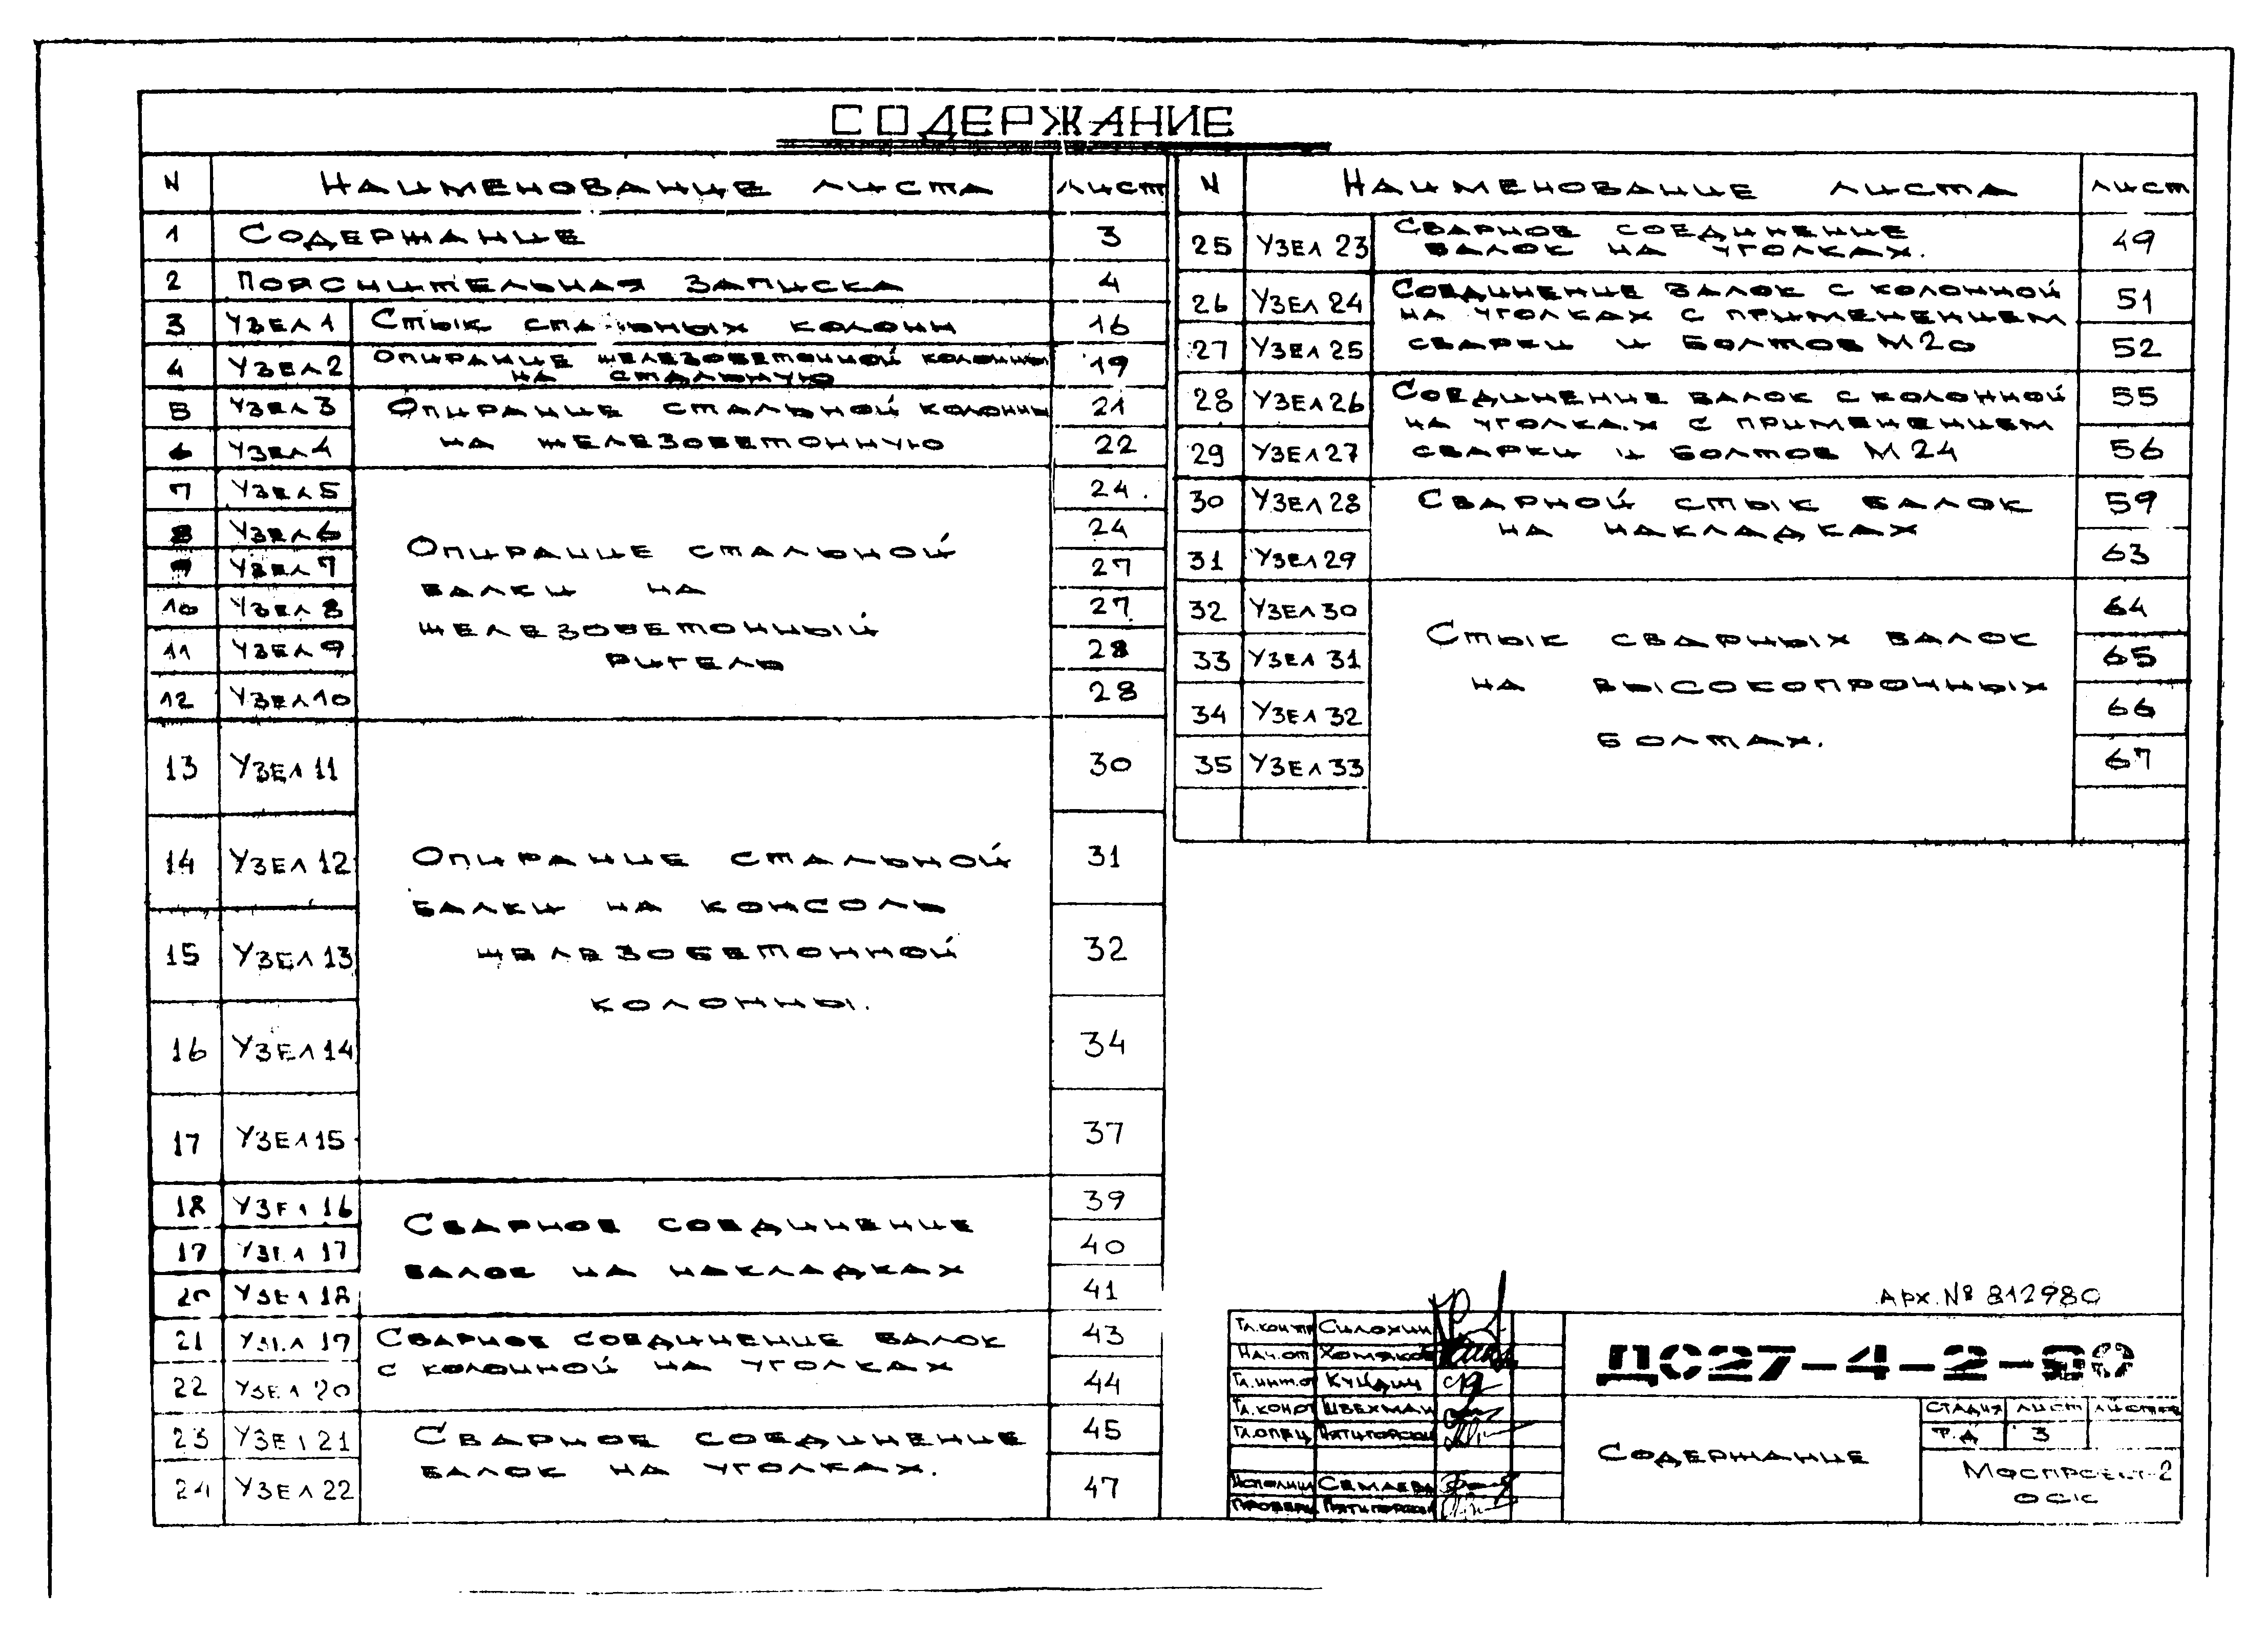 СОДЕРЖАНИЕ
N Наименование листа лист
1 Содержание 3
2 Пояснительная записка 4
3 Узел 1 Стык стальных колонн 16
4 Узел 2 Опирание железобетонной колонны на стальную 19
5 Узел 3 Опирание стальной колонны 21
6 Узел 4 на железобетонную 22
7 Узел 5 24
8 Узел 6 24
Опирание стальной
9 Узел 7 27
балки на
10 Узел 8 27
железобетонный
11 Узел 9 28
ригель
12 Узел 10 28
13 Узел 11 30
14 Узел 12 Опирание стальной 31
балки на консоль
15 Узел 13 железобетонной 32
колонны.
16 Узел 14 34
17 Узел 15 37
18 Узел 16 39
Сварное соединение
19 Узел 17 40
балок на накладках
20 Узел 18 41
21 Узел 19 Сварное соединение балок 43
с колонной на уголках
22 Узел 20 44
23 Узел 21 Сварное соединение 45
балок на уголках.
24 Узел 22 47
N Наименование листа лист
25 Узел 23 Сварное соединение
балок на уголках. 49
26 Узел 24 Соединение балок с колонной 51
на уголках с применением
27 Узел 25 сварки и болтов М20 52
28 Узел 26 Соединение балок с колонной 55
на уголках с применением
29 Узел 27 сварки и болтов М24 56
30 Узел 28 Сварной стык балок 59
на накладках
31 Узел 29 63
32 Узел 30 64
Стык сварных балок
33 Узел 31 65
на высокопрочных
34 Узел 32 66
болтах.
35 Узел 33 67
Арх. № 812980
Гл.контр Силохин
Нач.от Хомяков
Гл.инж.о Кундин
Гл.кон.о Швехман
Гл.спец Пятигорски
Исполнил Семаева
Проверил Пятигорски
ДС27-4-2-90
Стадия Лист Листов
Р.Д 3
Содержание
Моспроект-2
ОСК